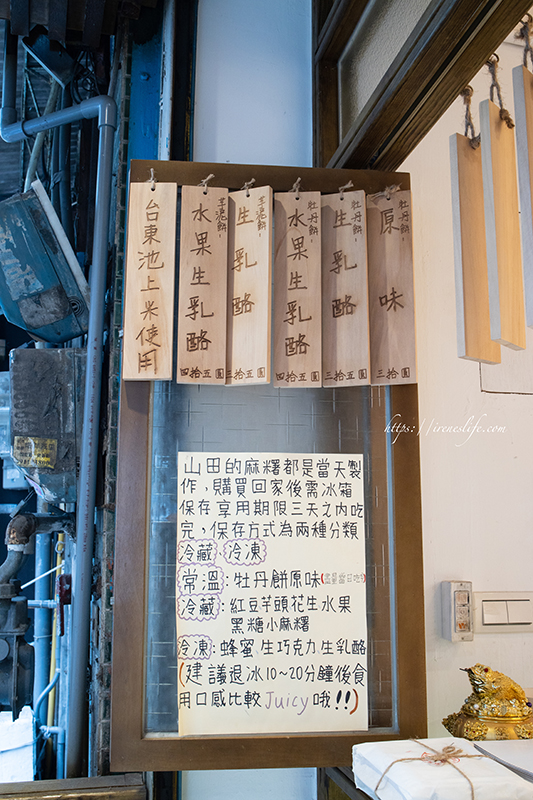 牡丹餅、
原味
三拾五圓
牡丹餅、
生乳酪
三拾五圓
牡丹餅、
水果生乳酪
四拾五圓
生乳酪
三拾五圓
水果生乳酪
四拾五圓
台東池上米使用
https://ireneslife.com/
山田的麻糬都是當天製
作，購買回家後需冰箱
保存享用期限三天之內吃
完，保存方式為兩種分類
冷藏、冷凍
常溫：牡丹餅原味
冷藏：紅豆芋頭花生水果
黑糖小麻糬
冷凍：蜂蜜生巧克力生乳酪
(建議退冰10~20分鐘後食
用口感比較Juicy哦!!)